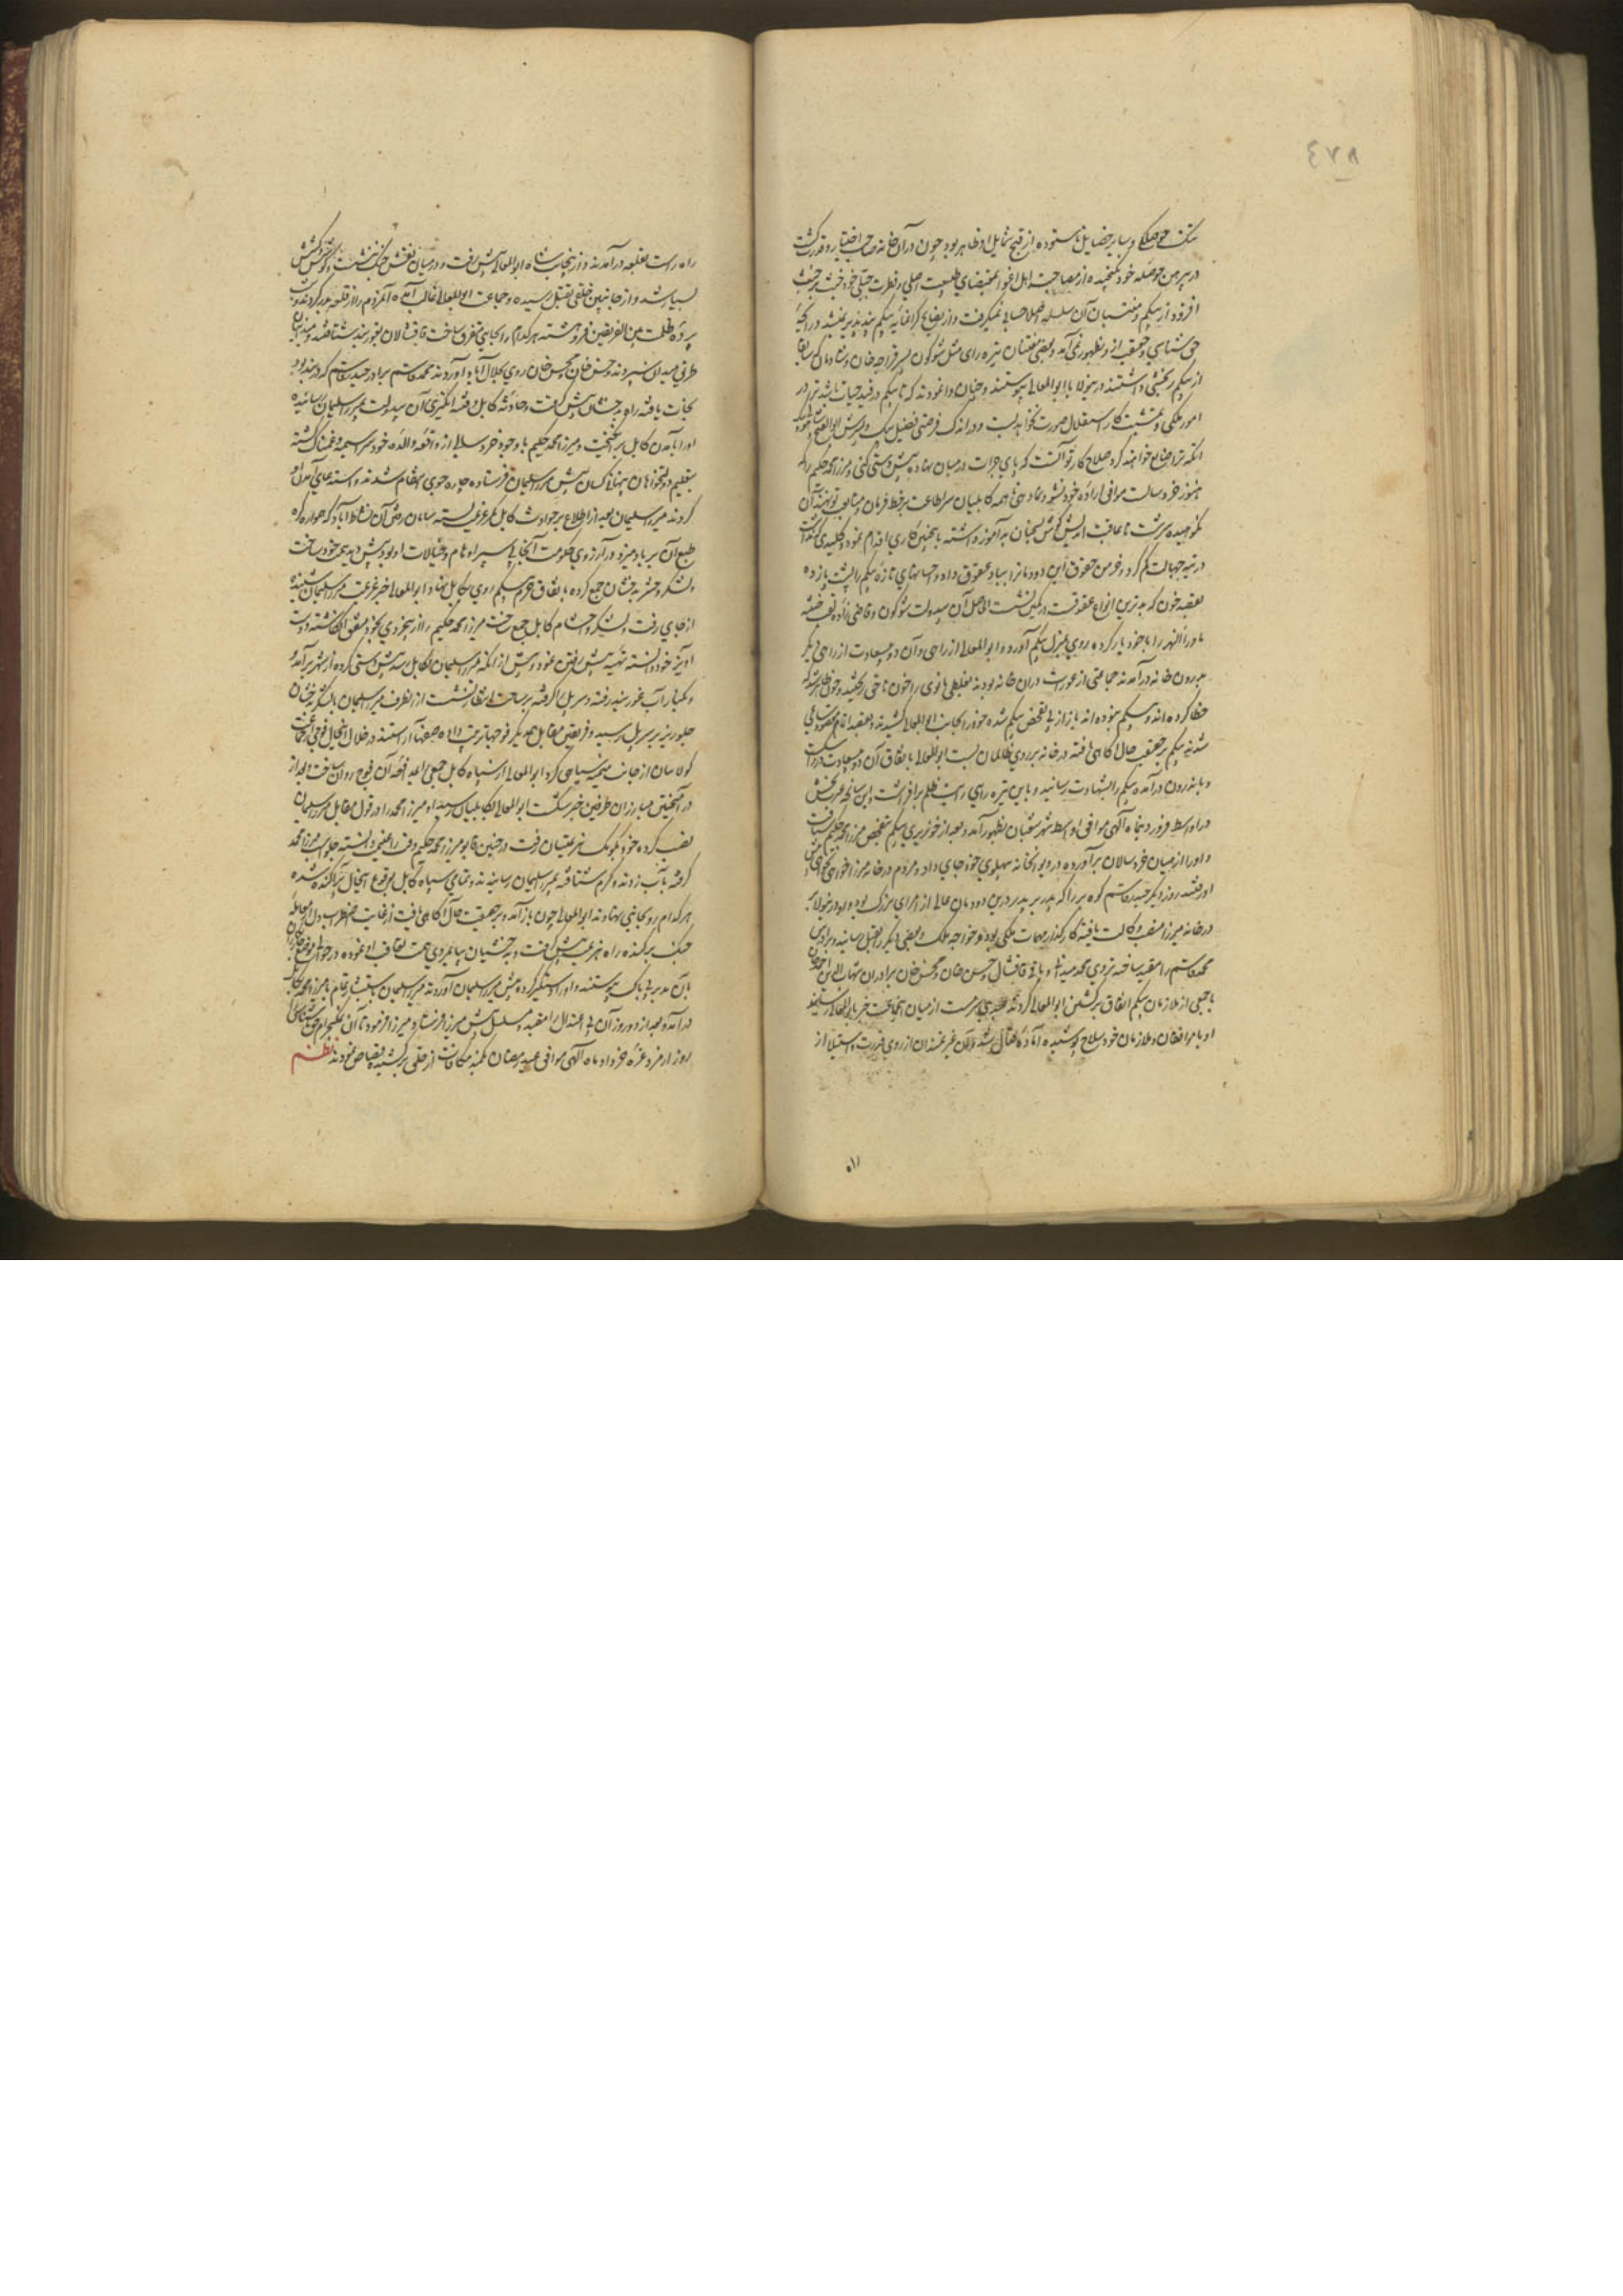 ٨٧٤
تنک حوصلکی و سایر خصایل ناستوده از قبح شمایل او ظاهر بود چون در آن خانه صاحب اختیار و قدرت کشت
در پیرهن حوصله خود نکنجیده از مصاحبت اهل اغوا بمقتضای طبیعت اصلی و فطرت جبلی خود خبث بر خبث
افزود از بیکم و منتسبان آن سلسله اصلا حسابی نمیکرفت و از نصایح کرانمایه بیکم پند پذیر نمیشد
حق شناسی و حقیقت از او بظهور نمی آمد و بعضی مفتنان تیره رای مثل شوکون پسر قراجه خان و شادمان که سابقا
از بیکم رنجشی داشتند درینولا با ابو المعالی پیوستند و چنان وانمودند که تا بیکم در قید حیات باشد ترا در
امور ملکی و تمشیت کار استقلال صورت نخواهد بست و در اندک فرصتی فضیل بیک و پسرش ابو الفتح
انکه ترا ضایع خواهند کرد صلاح کار تو آنست که پای جرات در میان نهاده پیش دستی کنی و میرزا محمد حکیم را که
هنوز خرد سالست موافق اراده خود نشو و نما دهی تا همه کابلیان سر اطاعت بر خط فرمان متابعت تو نهند آن
نکوهیده سرشت ناعاقبت اندیش کوش بسخنان بد آموز داشته بچنین کاری اقدام نمود و کلید
در تیه جهالت کم کرد و خرمن حقوق این دودمانرا بباد عقوق داد و احسانهای تازه بیکم را پشت پا زده
بقصد خون که بدترین انواع عقوقت در کمین نشست الحاصل آن بیدولت شوکون و قاضی زاده
ماوراالنهر را با خود یار کرده روی بمنزل بیکم آورد و ابو المعالی از راهی و آن دو بیسعادت از راهی دیکر
بدرون خانه درآمدند جماعتی از عورت در آن خانه بودند بغلطی بانوی را خون ناحق ریختند و چون ظاهر شد که
خطا کرده اند و بیکم نبوده اند باز از پی تفحص بیکم شده خود را بجانب ابو المعالی کشیدند و بقصد اتمام مقصود ساعی
شدند بیکم بر حقیقت حال آکاهی یافته در خانه بر روی ظالمان بست ابو المعالی باتفاق آن دو بیسعادت در را شکست
و باندرون درآمده بیکم را بشهادت رسانید و باین تیره رایی رایت ظلم برافراشت و این سانحه عبرت بخش
در اواسط فروردین ماه آلهی موافق اواسط شهر شعبان بظهور آمد و بعد از خونریزی بیکم بتفحص میرزا محمد حکیم شتافت
و او را از میان خرد سالان برآورده در دیوانخانه پهلوی خود جای داد و مردم در خانه میرزا خواهی نخواهی پیش
او رفتند روز دیکر حیدر قاسم کوه بر را که پدر بر پدر درین دودمان عالی از امرای بزرک بود و درینولا
در خانه میرزا منصب وکالت یافته کارکذار مهمات ملکی بود و خواجه ملک و بعضی دیکر را بقتل رسانید و برادرش
محمد قاسم را مقید ساخته تردی محمد میدانی و باقی قاقشال و حسن خان و محسن خان برادران شهاب الدین احمد خان
با جمعی از ملازمان بیکم اتفاق بر کشتن ابو المعالی کردند عیدی سرمست از میان انجماعت خبر بابو المعالی رسانید
او با موافقان و ملازمان خود سلاح پوشیده آماده قتال شد و آن غیرتمندان از روی قدرت و استیلا از
راه راست بقلعه درآمدند و از ینجانب شاه ابو المعالی پیش رفت و در میان نقش جنک نشست و کوشش و کشش
بسیار شد و از جانبین خلقی بقتل رسیده و جماعت ابو المعالی غالب آمده آنمردم را از قلعه بدر کردند و
پرده ظلمت بین الفریقین فروهشته هر کدام را بجایی متفرق ساخت قاقشالان بغوربند شتافتند و میدانیان
طرفی میدان سپردند و حسن خان و محسن خان روی بجلال آباد آوردند محمد قاسم برادر حیدر قاسم که در بند بود
نجات یافته راه بدخشان پیش کرفت و حادثه کابل و فتنه انکیزی آن بیدولت بمیرزا سلیمان رسانیده
او را بآمدن کابل برانکیخت و میرزا محمد حکیم با وجود خرد سالی از واقعه والده خود سراسیمه و غمناک کشته
بتعلیم دولتخواهان پنهانی کسان پیش میرزا سلیمان فرستاده چاره جوی انتقام شدند و استدعای آمدن او
کردند میرزا سلیمان بعد از اطلاع بر حوادث کابل کمر عزیمت بسته سامان رفتن آن نشاط آباد که همواره
طبع آن بر باد میزد و در آرزوی حکومت آنجا بسر اوهام و خیالات او بود پیش دید همت خود ساخت
و لشکر و حشر بدخشان جمع کرده باتفاق حرم بیکم روی بکابل نهاد ابو المعالی از خبر عزیمت میرزا سلیمان شنیده
از جای رفت و لشکر و حشم کابل جمع ساخت میرزا محمد حکیم را از بیخردی بخود متفق انکاشته دست
آویز خود دانسته تهیه پیش رفتن نمود و پیش از انکه میرزا سلیمان بکابل رسد پیش دستی کرده از شهر برآمد
و بکنار آب غوربند رفته و سر پل را کرفته بر ساحت انتظار نشست از انطرف میرزا سلیمان با لشکر بدخشان
جلوریز بر سر پل رسید و فریقین مقابل همدیکر فوجها ترتیب داده صفها آراستند در خلال اینحال فوجی از جماعت
کولابیان از جانب میمنه سیاهی کرد ابو المعالی از سپاه کابل جمعی را بمدافعه آن فوج روان ساخت و بعد از
در آمیختن مبارزان طرفین خبر شکست ابو المعالی بکابلیان رسید او میرزا محمد را در قول مقابل میرزا سلیمان
نصب کرده خود بکومک هزیمتیان رفت در چنین قابو میرزا محمد حکیم وقت را غنیمت دانسته جلو اسب میرزا محمد
کرفته بآب زدند و کرم شتافته بمیرزا سلیمان رسانیدند و تمامی سپاه کابل بوقوع اینحال پراکنده شده
هر کدام رو بجانبی نهادند ابو المعالی چون باز آمد و بر حقیقت حال آکاهی یافت از غایت اضطراب دل از معامله
جنک برکنده راه هزیمت پیش کرفت و بدخشیان بپایمردی همت تعاقب او نموده در حوالی موضع چاریکاران
بآن مدبر بی باک پیوستند و او را دستکیر کرده پیش میرزا سلیمان آوردند میرزا سلیمان باستبشار تمام با میرزا محمد بکابل
درآمد و بعد از دو روز آن بی اعتدال را مقید و مسلسل پیش میرزا فرستاد و میرزا فرمود تا آن نمکبحرام حق ناشناس را
روز ارمزد غره خرداد ماه آلهی موافق عید رمضان بکمند مکافات از حلق برکشیده بقصاص نمودند نظم